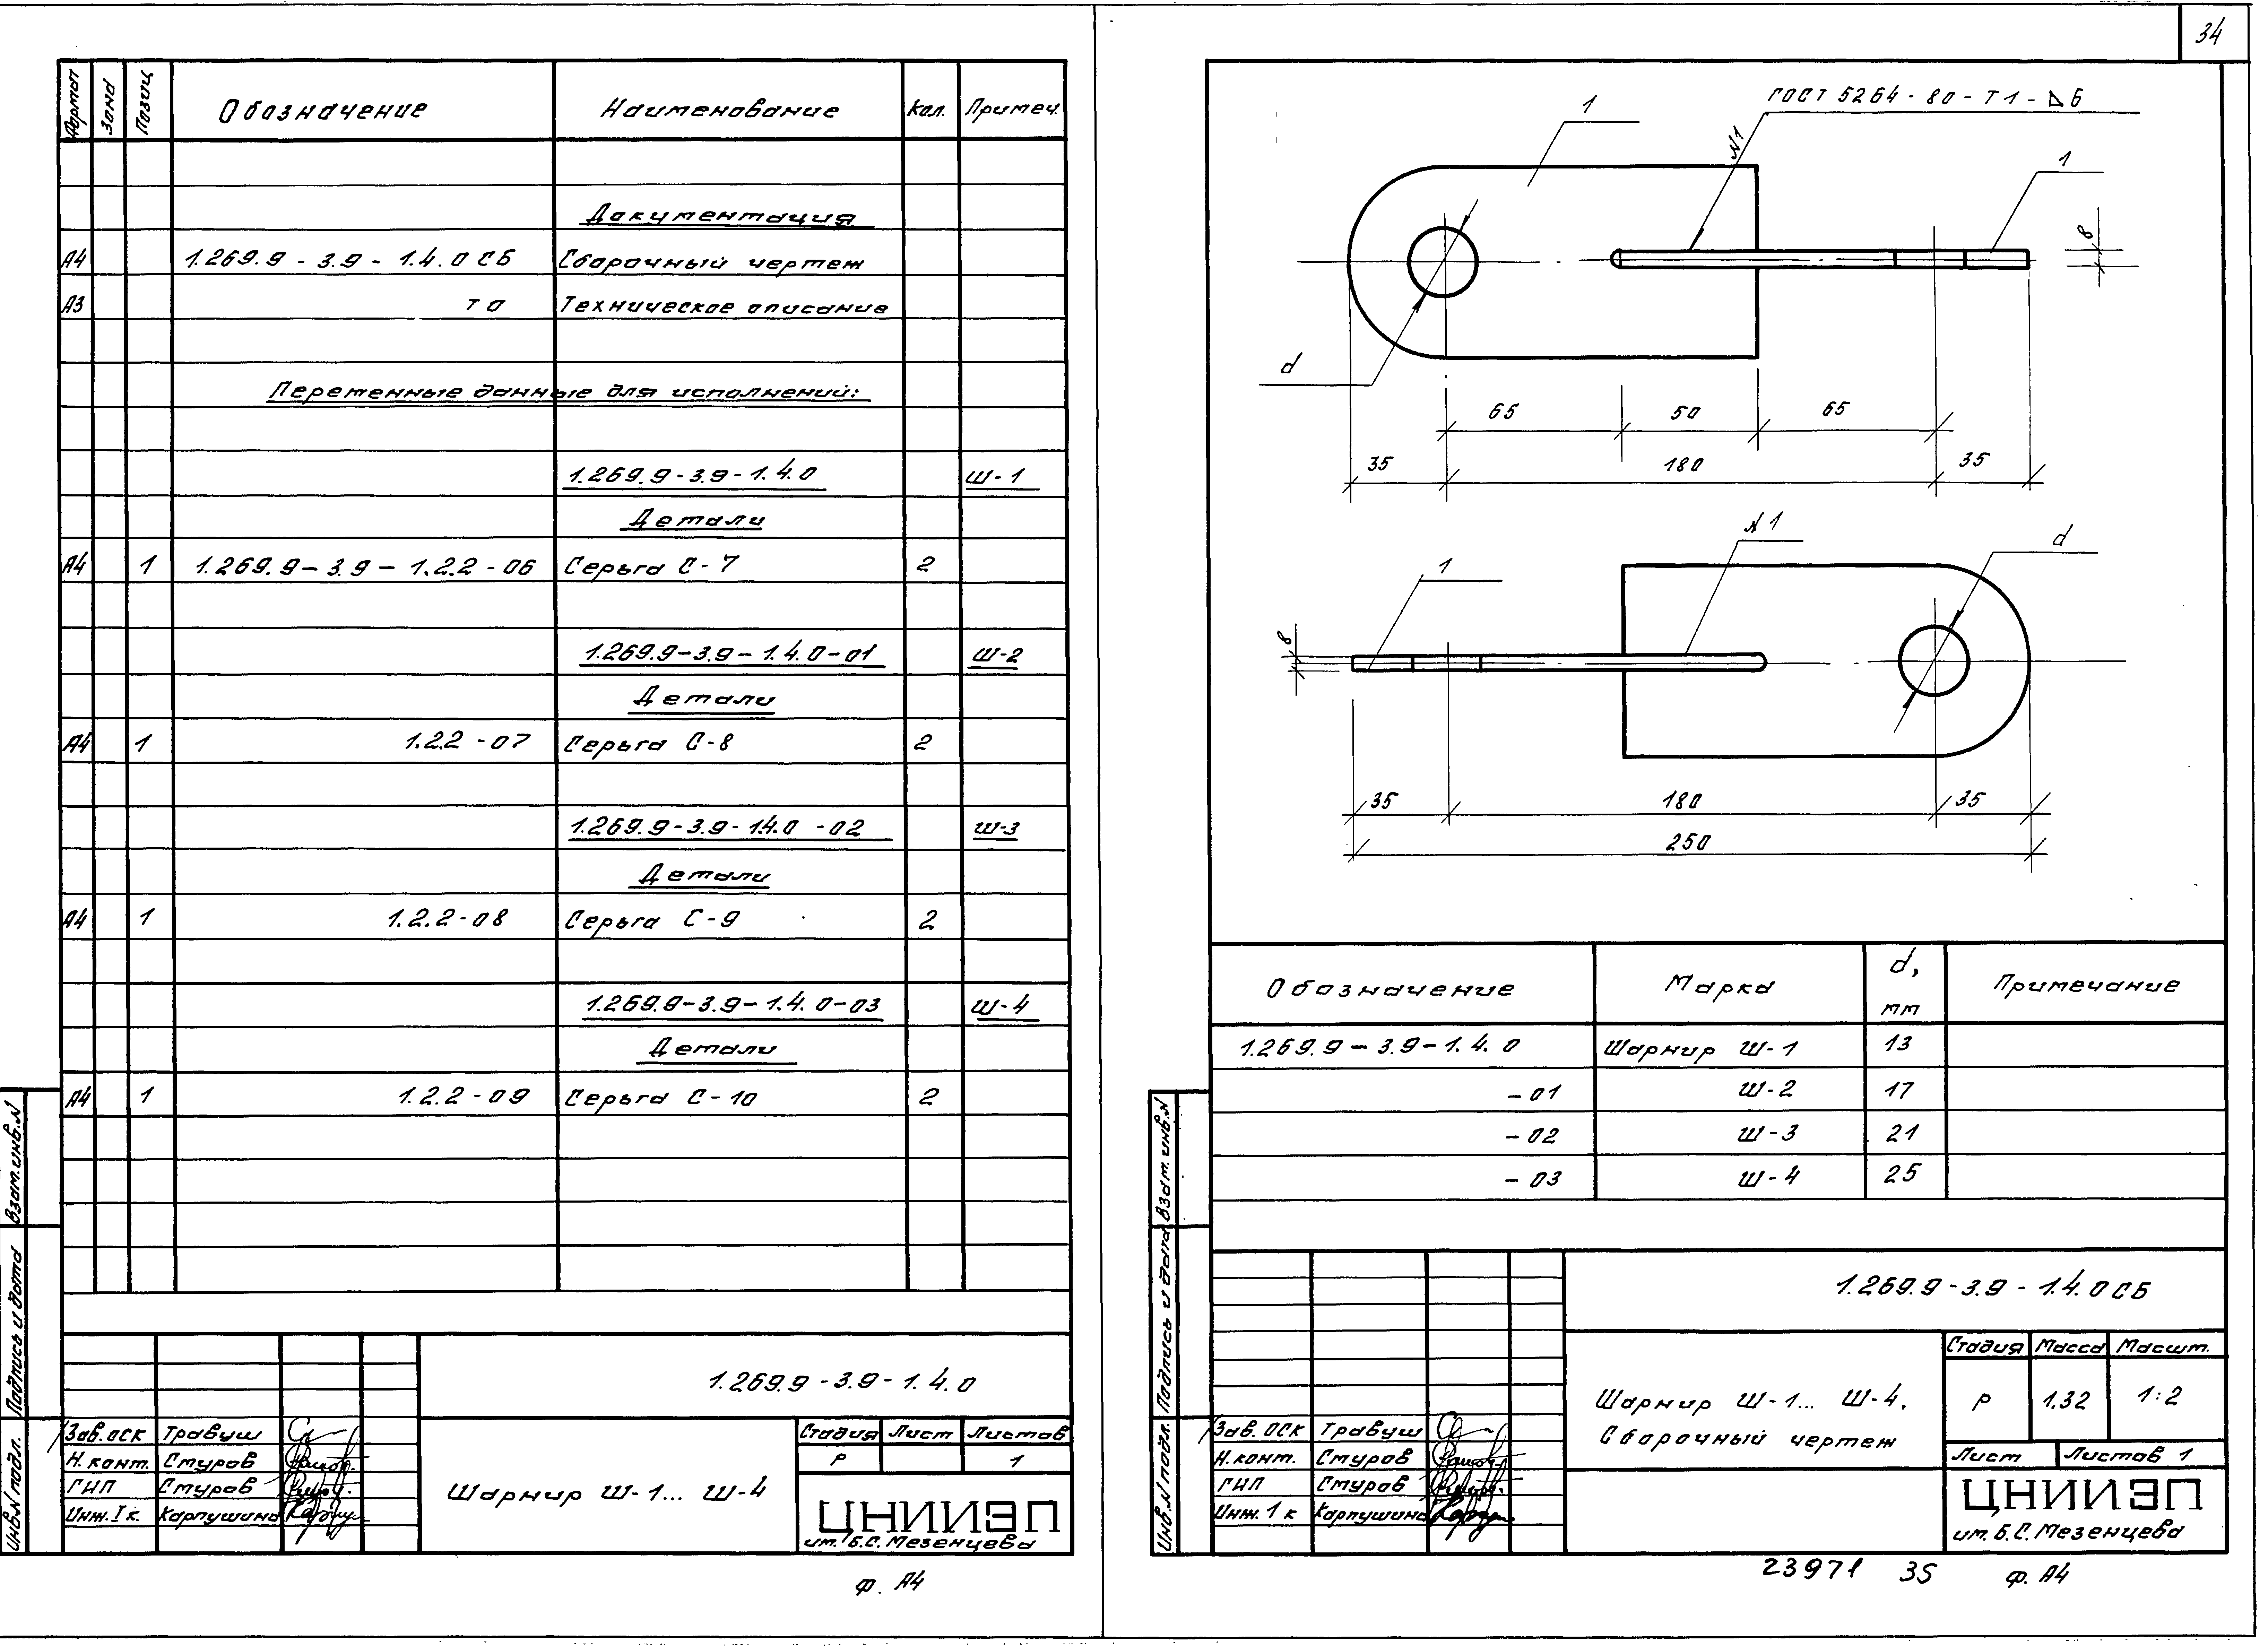 34
Формат Зона Позиц Обозначение Наименование Кол. Примеч.
Документация
А4 1.269.9-3.9-1.4.0 СБ Сборочный чертеж
А3 ТО Техническое описание
Переменные данные для исполнений:
1.269.9-3.9-1.4.0 Ш-1
Детали
А4 1 1.269.9-3.9-1.2.2-06 Серьга С-7 2
1.269.9-3.9-1.4.0-01 Ш-2
Детали
А4 1 1.2.2-07 Серьга С-8 2
1.269.9-3.9-1.4.0-02 Ш-3
Детали
А4 1 1.2.2-08 Серьга С-9 2
1.269.9-3.9-1.4.0-03 Ш-4
Детали
А4 1 1.2.2-09 Серьга С-10 2
Взам.инв.N
Подпись и дата
Инв.N подл.
1.269.9-3.9-1.4.0
Зав.ОСК Травуш
Н.конт. Стуров
ГИП Стуров
Инж.I к. Карпушина
Шарнир Ш-1... Ш-4
Стадия Лист Листов
Р 1
ЦНИИЭП
им. Б.С. Мезенцева
Ф. А4
1
ГОСТ 5264-80-Т1-△6
N1
1
8
d
65 50 65
35 180 35
N1
1
d
8
35 180 35
250
Обозначение Марка d, мм Примечание
1.269.9-3.9-1.4.0 Шарнир Ш-1 13
-01 Ш-2 17
-02 Ш-3 21
-03 Ш-4 25
Взам.инв.N
Подпись и дата
Инв.N подл.
1.269.9-3.9-1.4.0СБ
Зав.ОСК Травуш
Н.конт. Стуров
ГИП Стуров
Инж.1 к Карпушина
Шарнир Ш-1... Ш-4.
Сборочный чертеж
Стадия Масса Масшт.
Р 1.32 1:2
Лист Листов 1
ЦНИИЭП
им. Б.С. Мезенцева
23971 35 Ф. А4